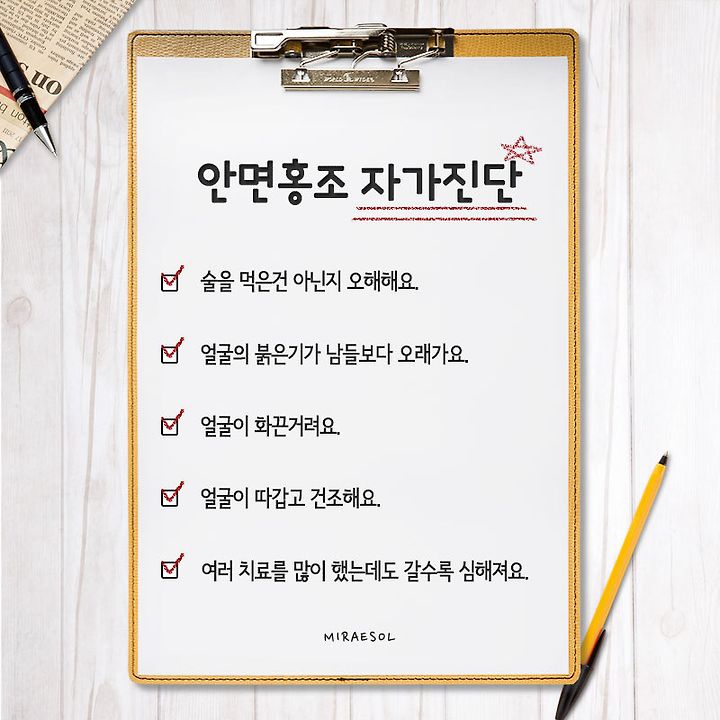 안면홍조 자가진단
술을 먹은건 아닌지 오해해요.
얼굴의 붉은기가 남들보다 오래가요.
얼굴이 화끈거려요.
얼굴이 따갑고 건조해요.
여러 치료를 많이 했는데도 갈수록 심해져요.
MIRAESOL